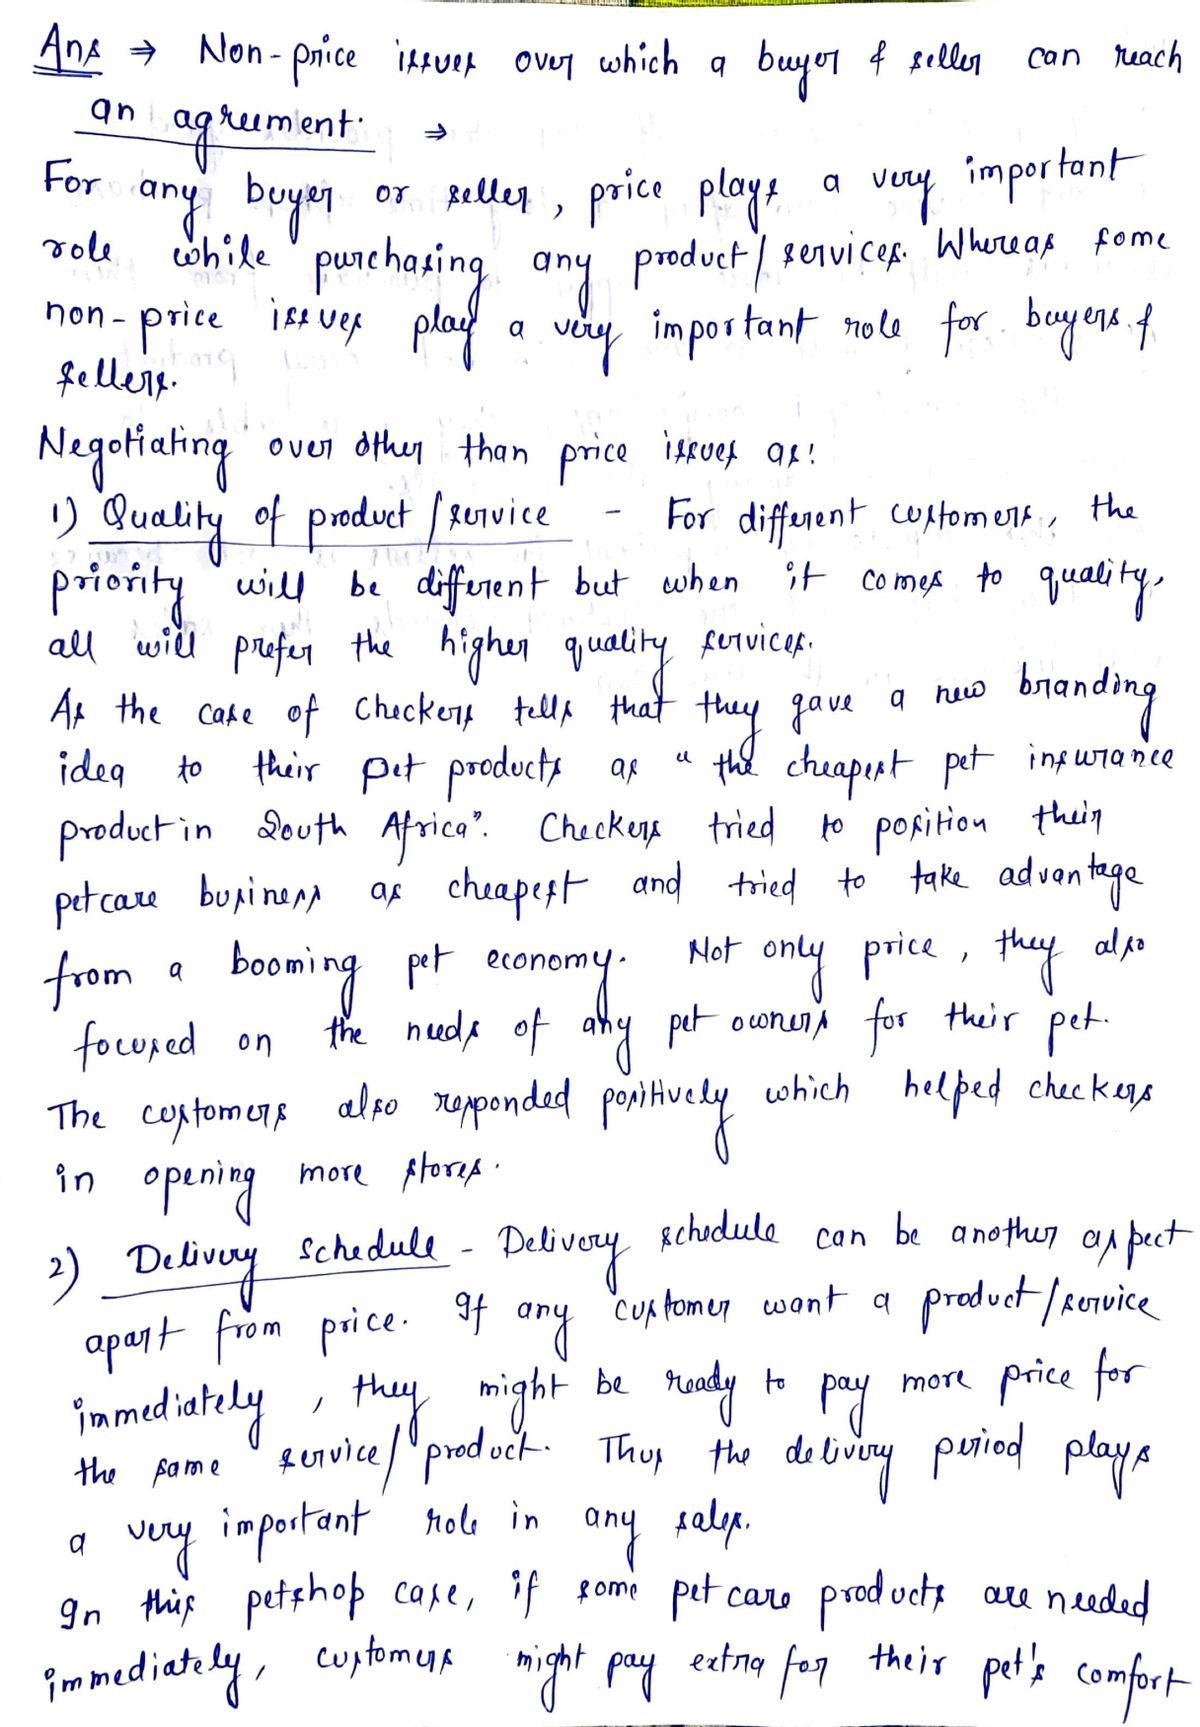 Ans ⇒ Non-price issues over which a buyer & seller can reach
an agreement. ⇒
For any buyer or seller, price plays a very important
role while purchasing any product/services. Whereas some
non-price issues play a very important role for buyers &
sellers.
Negotiating over other than price issues as:
1) Quality of product/service - For different customers, the
priority will be different but when it comes to quality,
all will prefer the higher quality services.
As the case of Checkers tells that they gave a new branding
idea to their pet products as "the cheapest pet insurance
product in South Africa". Checkers tried to position their
petcare business as cheapest and tried to take advantage
from a booming pet economy. Not only price, they also
focused on the needs of any pet owners for their pet.
The customers also responded positively which helped checkers
in opening more stores.
2) Delivery schedule - Delivery schedule can be another aspect
apart from price. If any customer want a product/service
immediately, they might be ready to pay more price for
the same service/product. Thus the delivery period plays
a very important role in any sales.
In this petshop case, if some pet care products are needed
immediately, customers might pay extra for their pet's comfort